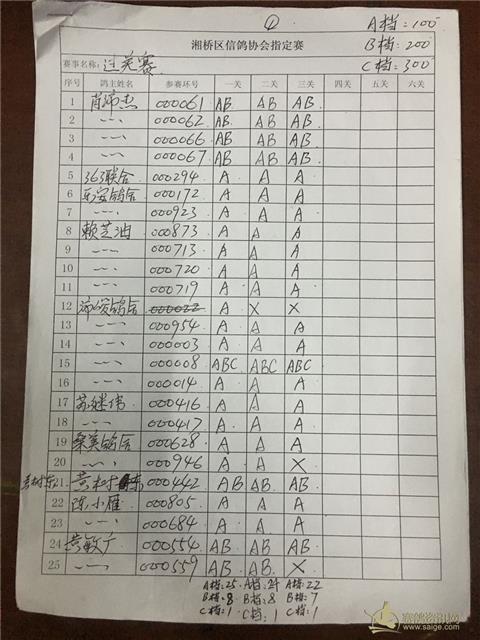 ①
A档: 100
湘桥区信鸽协会指定赛
B档: 200
赛事名称: 过关赛
C档: 300
序号 鸽主姓名 参赛环号 一关 二关 三关 四关 五关 六关
1 肖沛杰 000061 AB AB AB
2 〃 000062 AB AB AB
3 〃 000066 AB AB AB
4 〃 000067 AB AB AB
5 363联合 000294 A A A
6 乐安鸽舍 000172 A A A
7 〃 000923 A A A
8 赖芝油 000873 A A A
9 〃 000713 A A A
10 〃 000720 A A A
11 〃 000719 A A A
12 鸽舍 000022 A X X
13 〃 000954 A A A
14 〃 000003 A A A
15 〃 000008 ABC ABC ABC
16 〃 000014 A A A
17 苏继伟 000416 A A A
18 〃 000417 A A A
19 集美鸽舍 000628 A A A
20 〃 000946 A A X
黄树东 21 黄树东 000442 AB AB AB
22 陈小雁 000805 A A A
23 〃 000684 A A A
24 黄敏广 000554 AB AB AB
25 〃 000559 AB AB X
A档: 25 A档: 24 A档: 22
B档: 8 B档: 8 B档: 7
C档: 1 C档: 1 C档: 1
赛鸽资讯网
www.saige.com